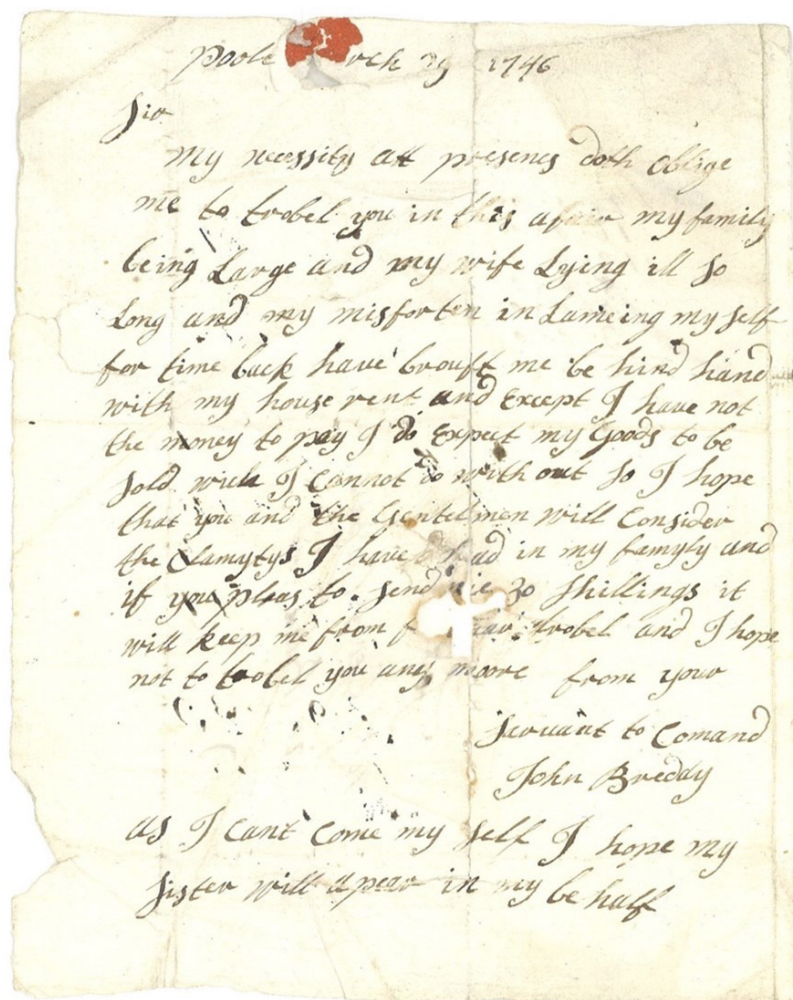 Poole rch 29 1746
Sir
My necessity att presents doth oblige
me to trobel you in this afair my family
being Large and my wife Lying ill so
Long and my misforten in Lameing my self
for time back have brouft me be hind hand
with my house rent and Except I have not
the money to pay I do Expect my Goods to be
sold wich I Cannot do with out so I hope
that you and the Gentelmen will Consider
the Clamytys I have had in my famyly and
if you pleas to send me 20 shillings it
will keep me from trobel and I hope
not to trobel you any moore from your
servant to Comand
John Breddy
as I Cant Come my self I hope my
sister will apear in my be half